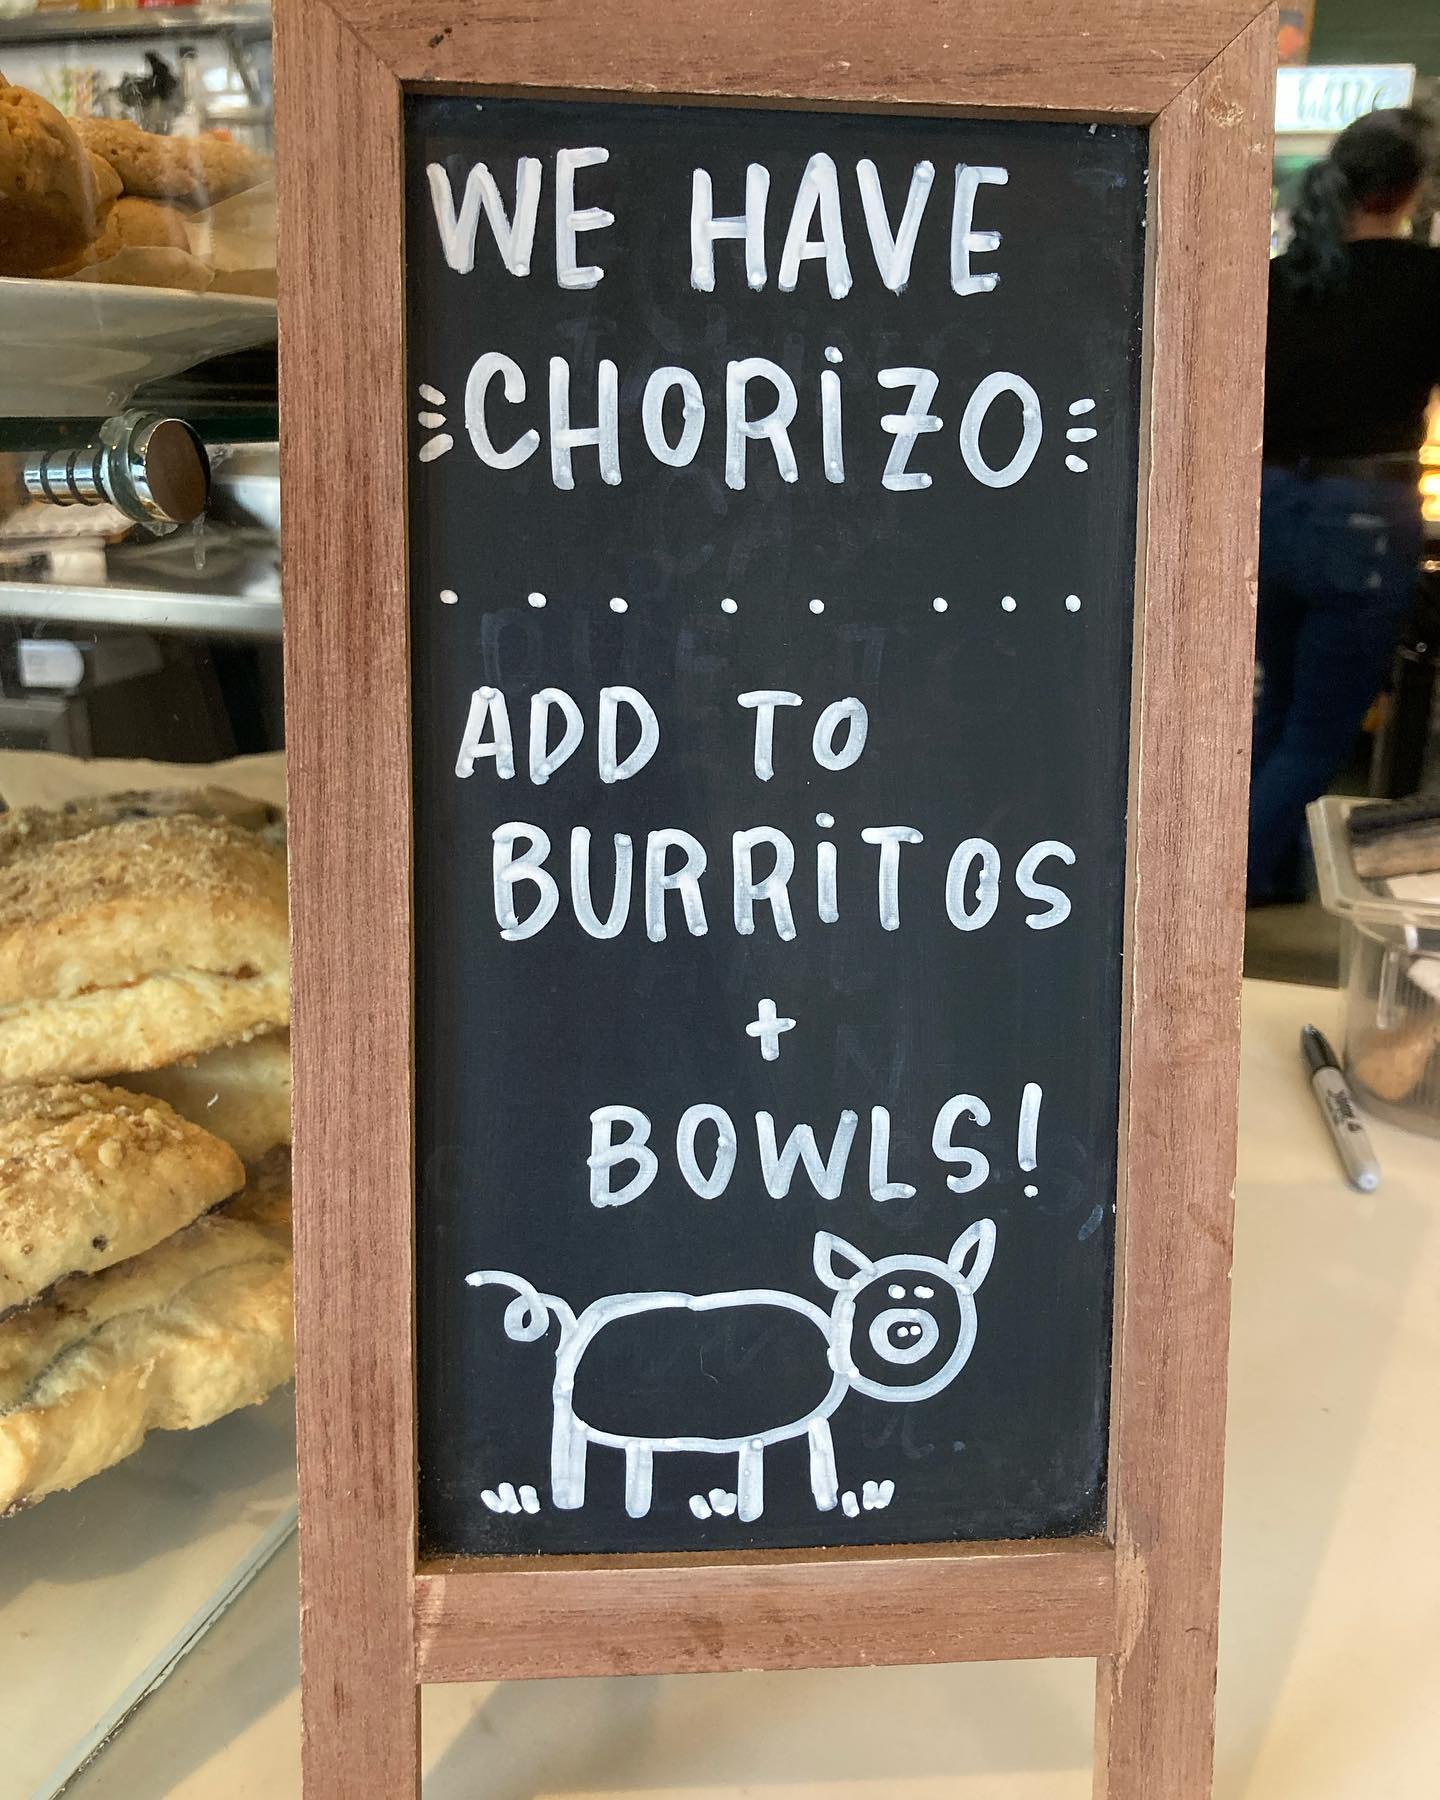 WE HAVE
CHORiZO
ADD TO
BURRiTOS
+
BOWLS!